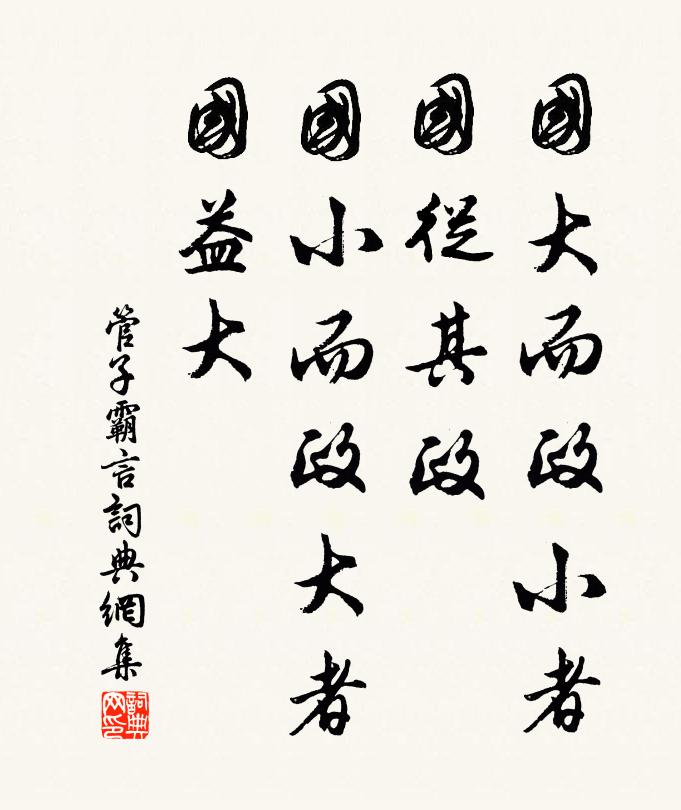 國大而政小者
國從其政
國小而政大者
國益大
管子霸言詞典網集
詞典网印